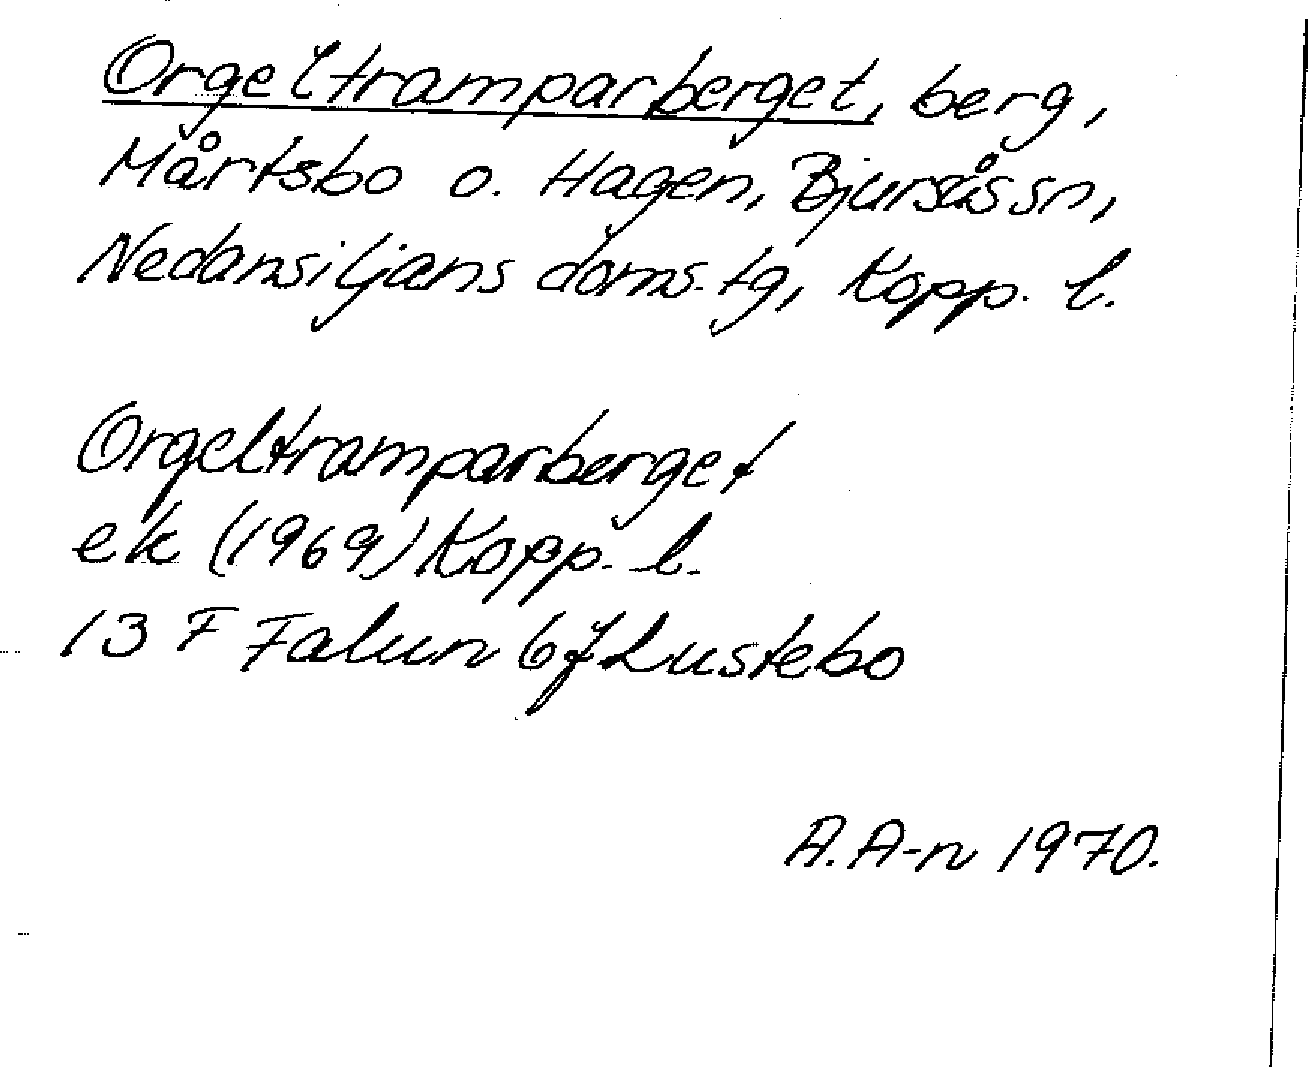 Orgeltramparberget, berg,
Mårtsbo o. Hagen, Bjursås sn,
Nedansiljans doms. tg, Kopp. l.
Orgeltramparberget
ek (1969) Kopp. l.
13 F Falun 6f Lustebo
A. A-n 1970.